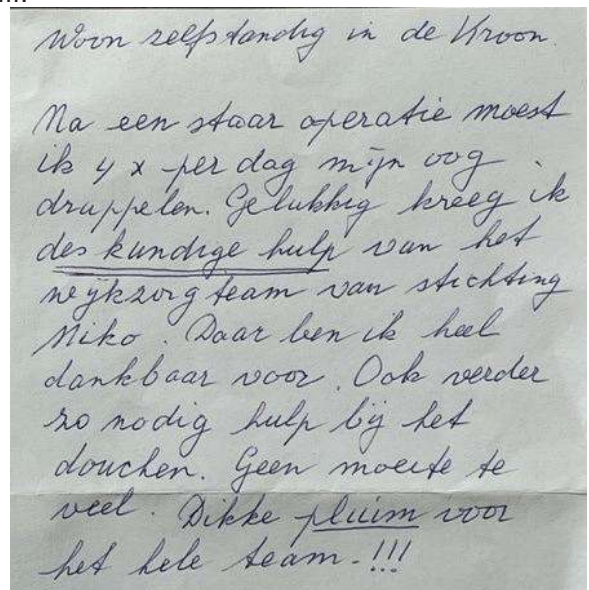 Woon zelfstandig in de Kroon.
Na een staar operatie moest
ik 4 x per dag mijn oog
druppelen. Gelukkig kreeg ik
des kundige hulp van het
wijkzorgteam van stichting
Niko. Daar ben ik heel
dankbaar voor. Ook verder
zo nodig hulp bij het
douchen. Geen moeite te
veel. Dikke pluim voor
het hele team-!!!